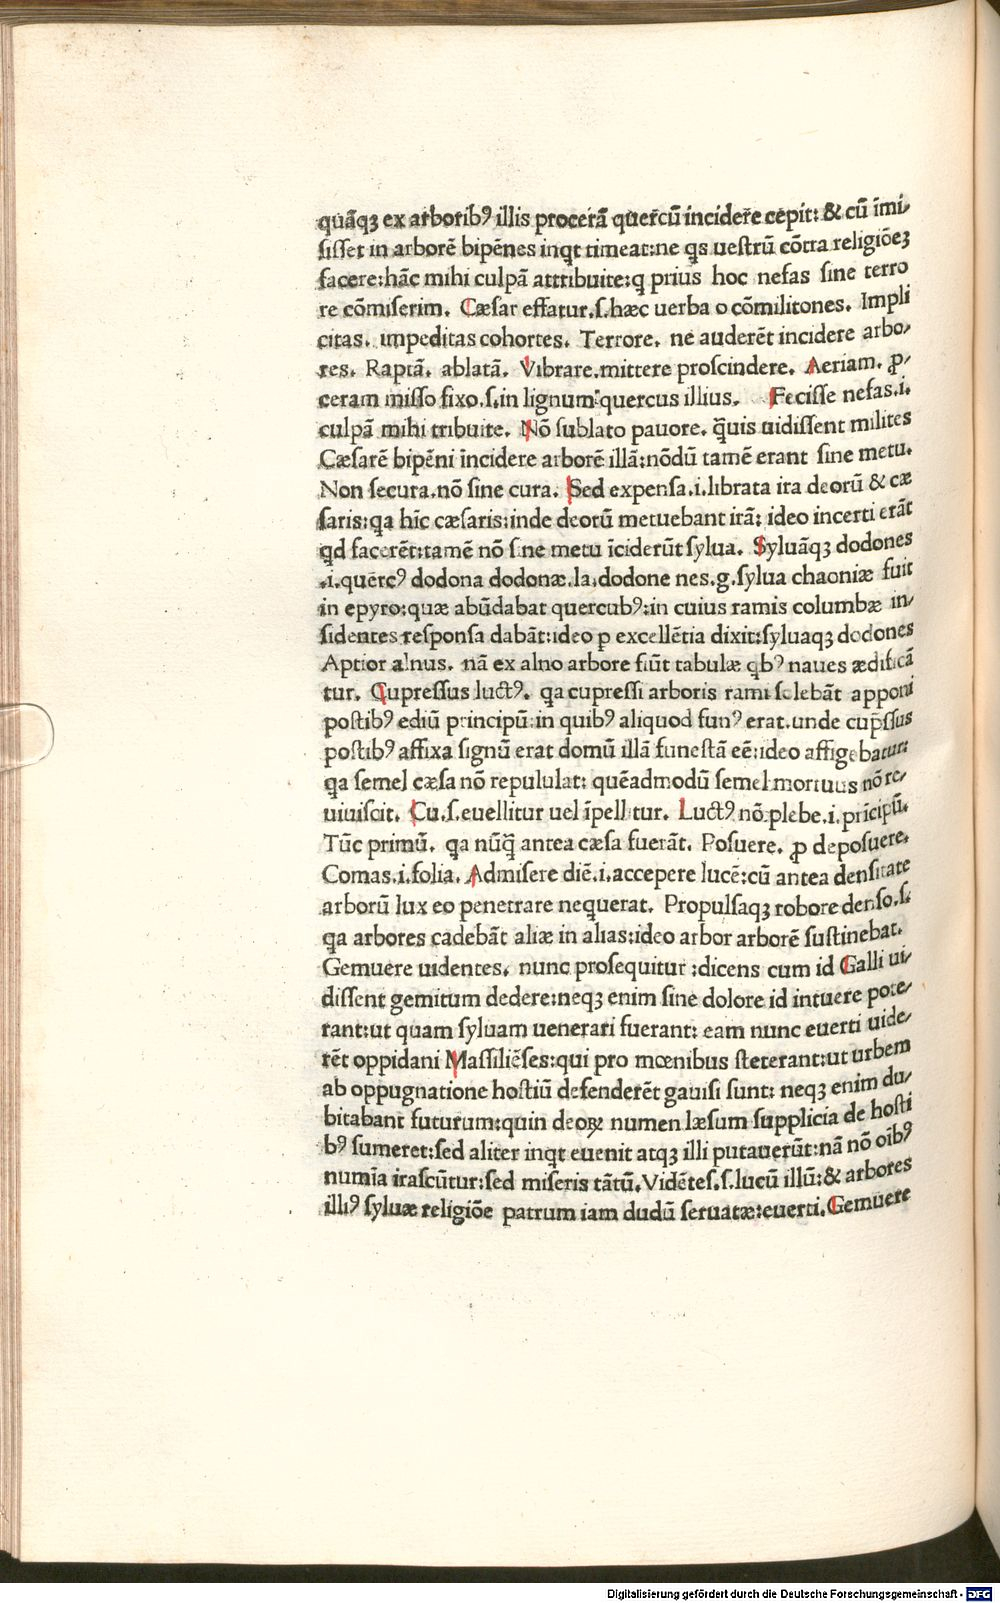 quãqʒ ex arboribꝰ illis procerã quercũ incidere cepit: & cũ ĩmi/
sisset in arborẽ bipẽnes inqt timeat:ne qs uestrũ cõtra religiõeʒ
facere:hãc mihi culpã attribuite:q prius hoc nefas sine terro
re cõmiserim. Cæsar effatur.s.hæc uerba o cõmilitones. Impli
citas. impeditas cohortes. Terrore. ne auderẽt incidere arbo/
res. Raptã. ablatã. Vibrare.mittere proscindere. Aeriam. ꝓ/
ceram misso fixo.s.in lignum:quercus illius. Fecisse nefas.i.
culpã mihi tribuite. Nõ sublato pauore. q̃uis uidissent milites
Cæsarẽ bipẽni ĩncidere arborẽ illã:nõdũ tamẽ erant sine metu.
Non secura.nõ sine cura. Sed expensa.i.librata ira deorũ & cæ
saris:qa hĩc cæsaris:inde deorũ metuebant irã: ideo incerti erãt
qd facerẽt:tamẽ nõ sine metu ĩciderũt sylua. Syluãqʒ dodones
.i.quẽrcꝰ dodona dodonæ.la.dodone nes.g.sylua chaoniæ fuit
in epyro:quæ abũdabat quercubꝰ:in cuius ramis columbæ in/
sidentes responsa dabãt:ideo ꝑ excellẽtia dixit:syluaqʒ dodones
Aptior alnus. nã ex alno arbore fiũt tabulæ qbꝰ naues ædificã
tur. Cupressus luctꝰ. qa cupressi arboris rami solebãt apponi
postibꝰ ediũ principũ:in quibꝰ aliquod funꝰ erat.unde cup̃ssus
postibꝰ affixa signũ erat domũ illã funestã eẽ:ideo affigebatur:
qa semel cæsa nõ repululat: quẽadmodũ semel mortuus nõ re/
uiuiscit. Cu.s.euellitur uel ĩpellitur. Luctꝰ nõ.plebe.i.prĩcipũ.
Tũc primũ. qa nũq̃ antea cæsa fuerãt. Posuere. ꝓ deposuere.
Comas.i.folia. Admisere diẽ.i.accepere lucẽ:cũ antea densitate
arborũ lux eo penetrare nequerat. Propulsaqʒ robore denso.s.
qa arbores cadebãt aliæ in alias:ideo arbor arborẽ sustinebat.
Gemuere uidentes. nunc prosequitur :dicens cum id Galli ui/
dissent gemitum dedere:neqʒ enim sine dolore id intuere pote/
rant:ut quam syluam uenerari fuerant: eam nunc euerti uide/
rẽt oppidani Massiliẽses:qui pro mœnibus steterant:ut urbem
ab oppugnatione hostiũ defenderẽt gauisi sunt: neqʒ enim du/
bitabant futurum:quin deoꝝ numen læsum supplicia de hosti
bꝰ sumeret:sed aliter inqt euenit atqʒ illi putauerũt:nã nõ oĩbꝰ
numĩa irascũtur:sed miseris tãtũ.Vidẽtes.s.lucũ illũ:& arbores
illiꝰ syluæ religiõe patrum iam dudũ seruatæ:euerti.Gemuere
Digitalisierung gefördert durch die Deutsche Forschungsgemeinschaft - DFG